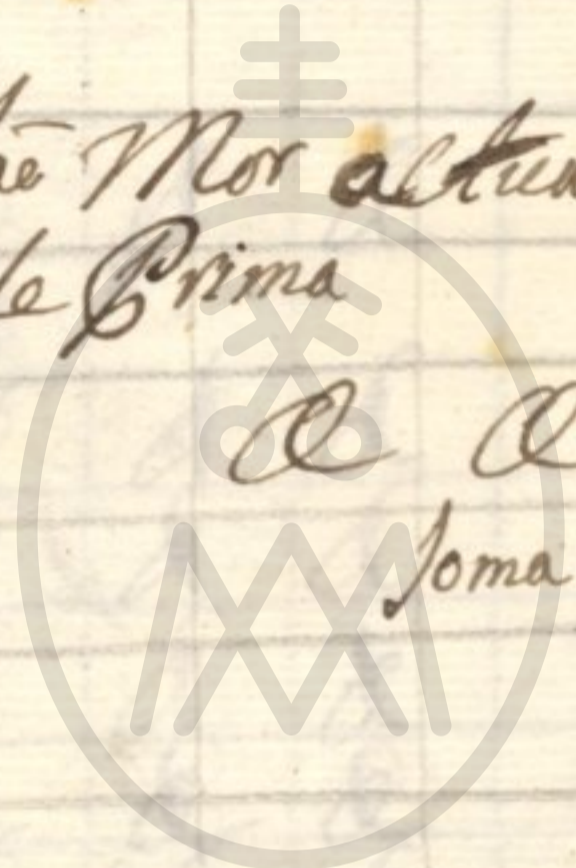 Mor actua
de Prima
@ @
Soma